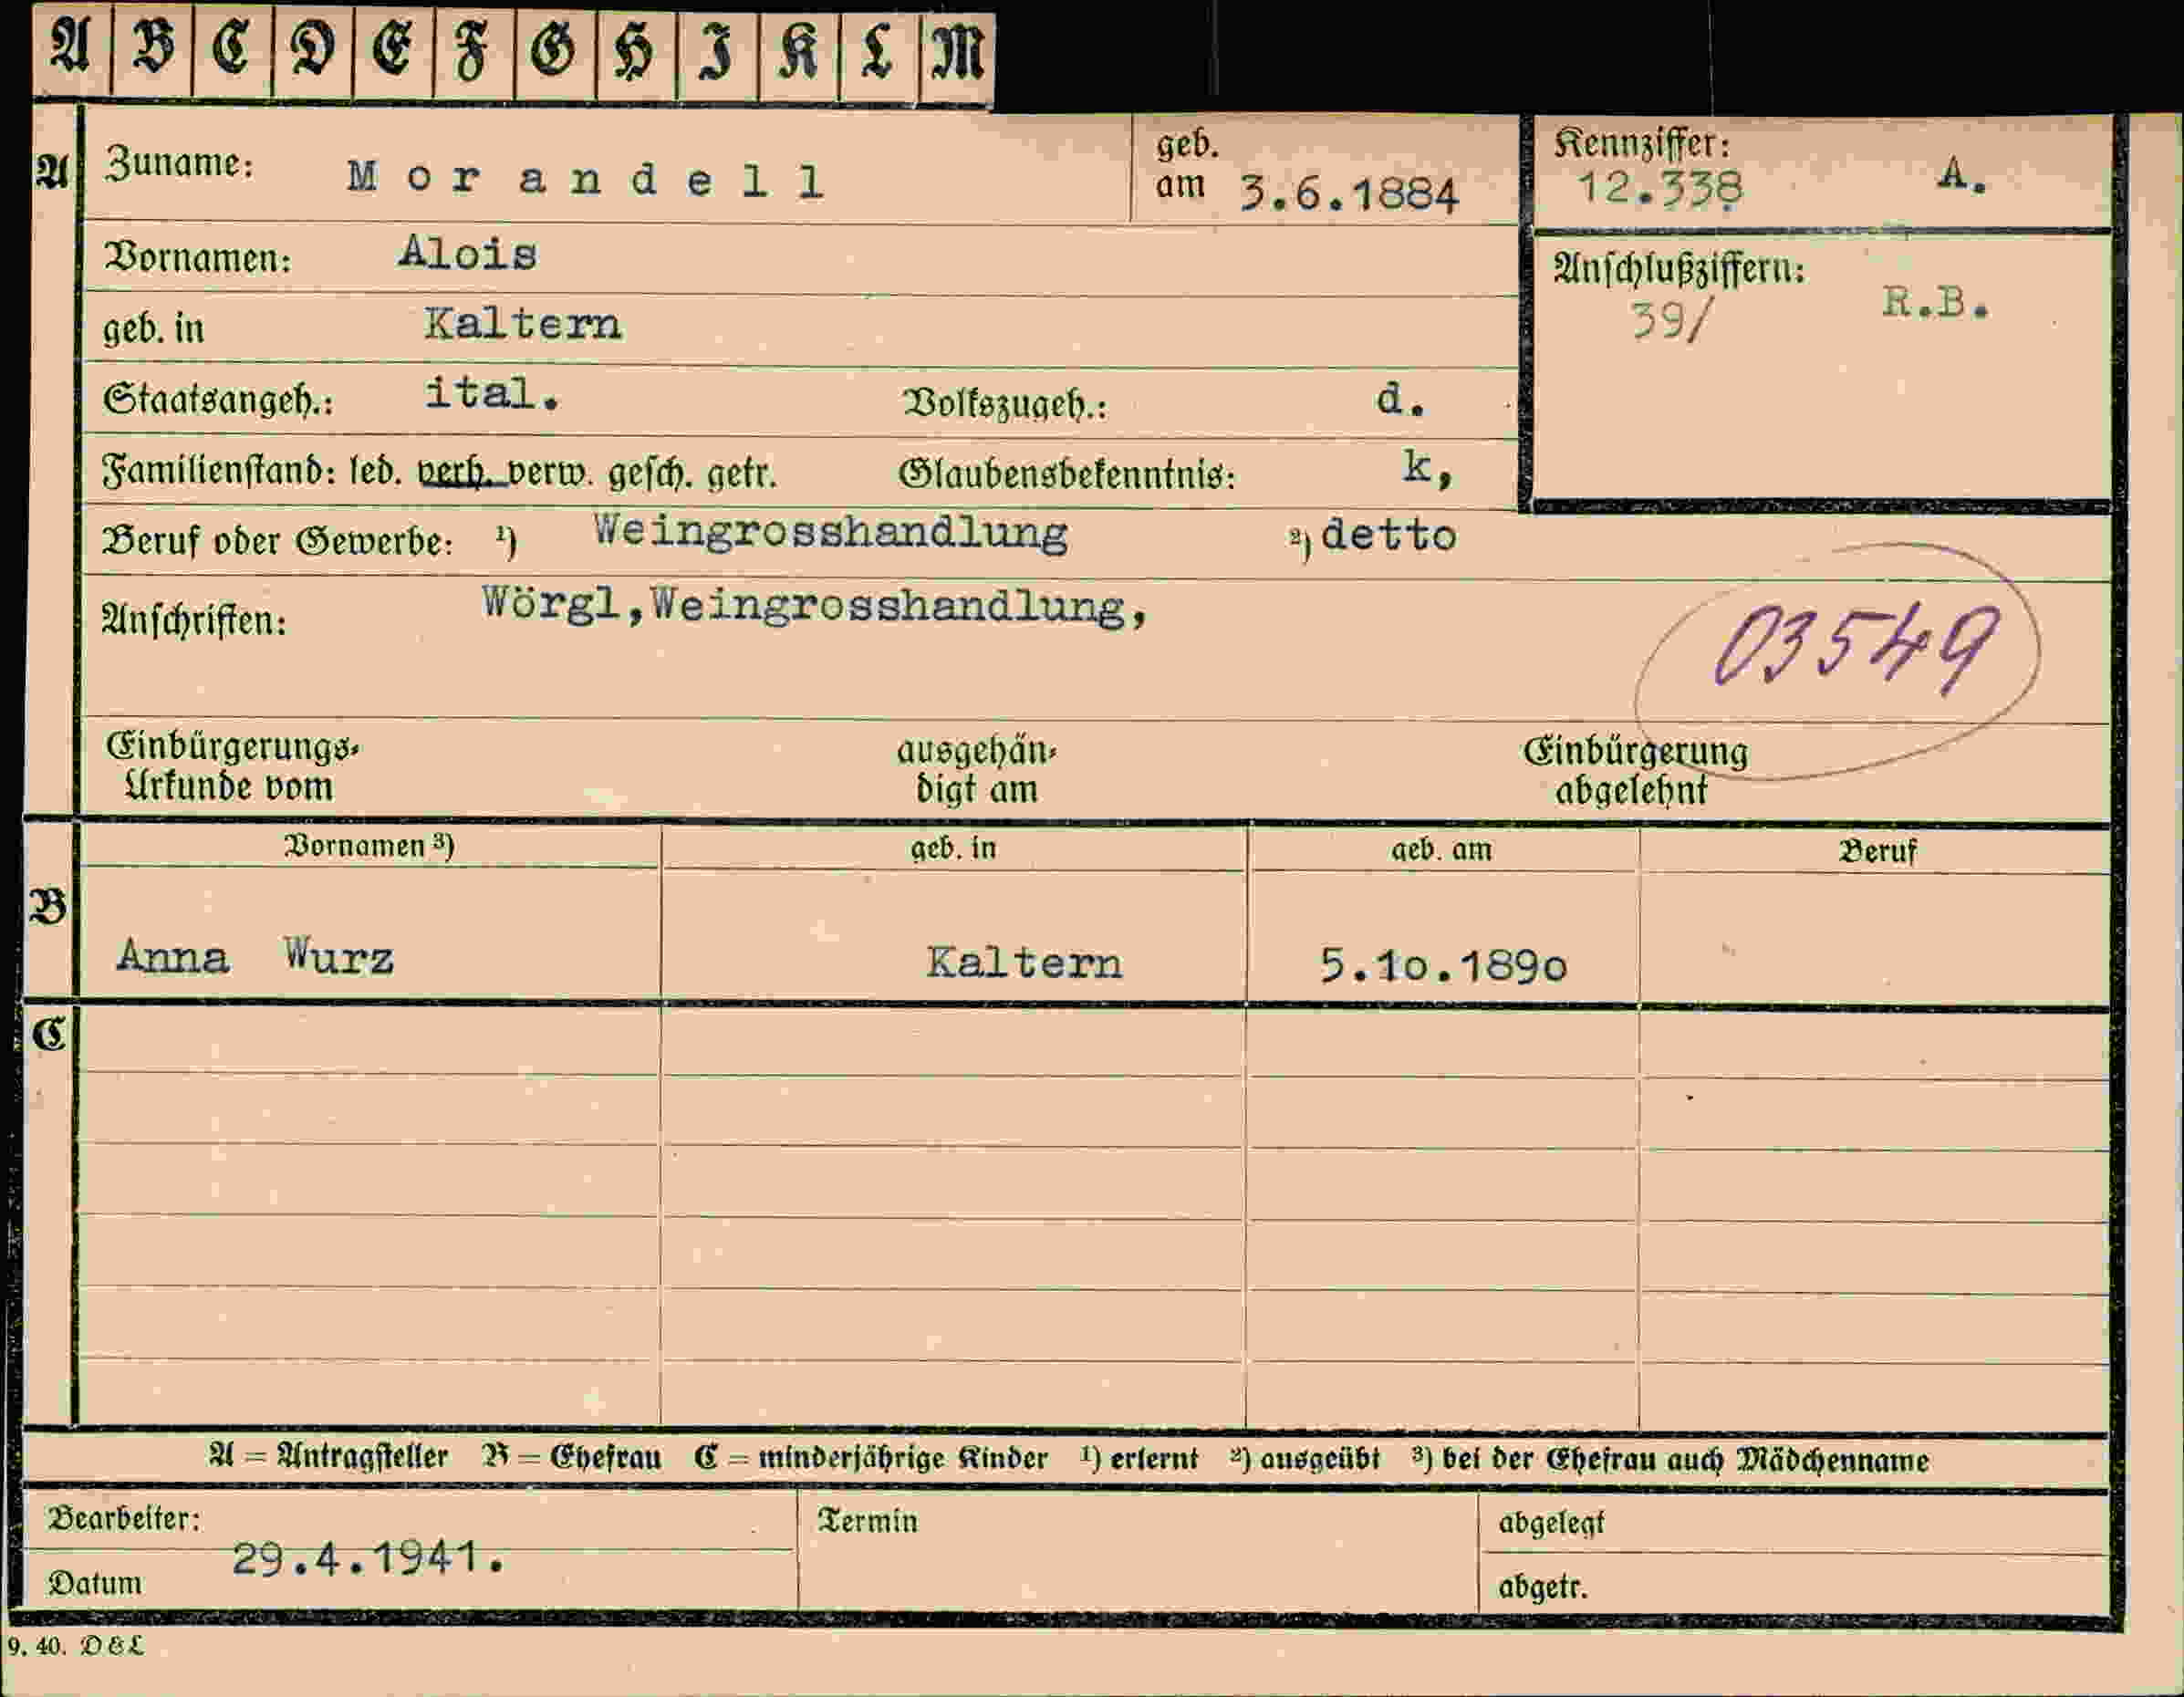 A B C D E F G H I K L M
A Zuname: Morandell geb. am 3.6.1884
Kennziffer: 12.338 A.
Vornamen: Alois
Anschlußziffern: 39/ R.B.
geb. in Kaltern
Staatsangeh.: ital. Volkszugeh.: d.
Familienstand: led. verh. verw. gesch. getr. Glaubensbekenntnis: k,
Beruf oder Gewerbe: ¹) Weingrosshandlung ²) detto
Anschriften: Wörgl,Weingrosshandlung,
03549
Einbürgerungs- ausgehän- Einbürgerung
Urkunde vom digt am abgelehnt
Vornamen ³) geb. in geb. am Beruf
B
Anna Wurz Kaltern 5.1o.189o
C
A = Antragsteller B = Ehefrau C = minderjährige Kinder ¹) erlernt ²) ausgeübt ³) bei der Ehefrau auch Mädchenname
Bearbeiter: Termin abgelegt
29.4.1941.
Datum abgetr.
9. 40. D & L